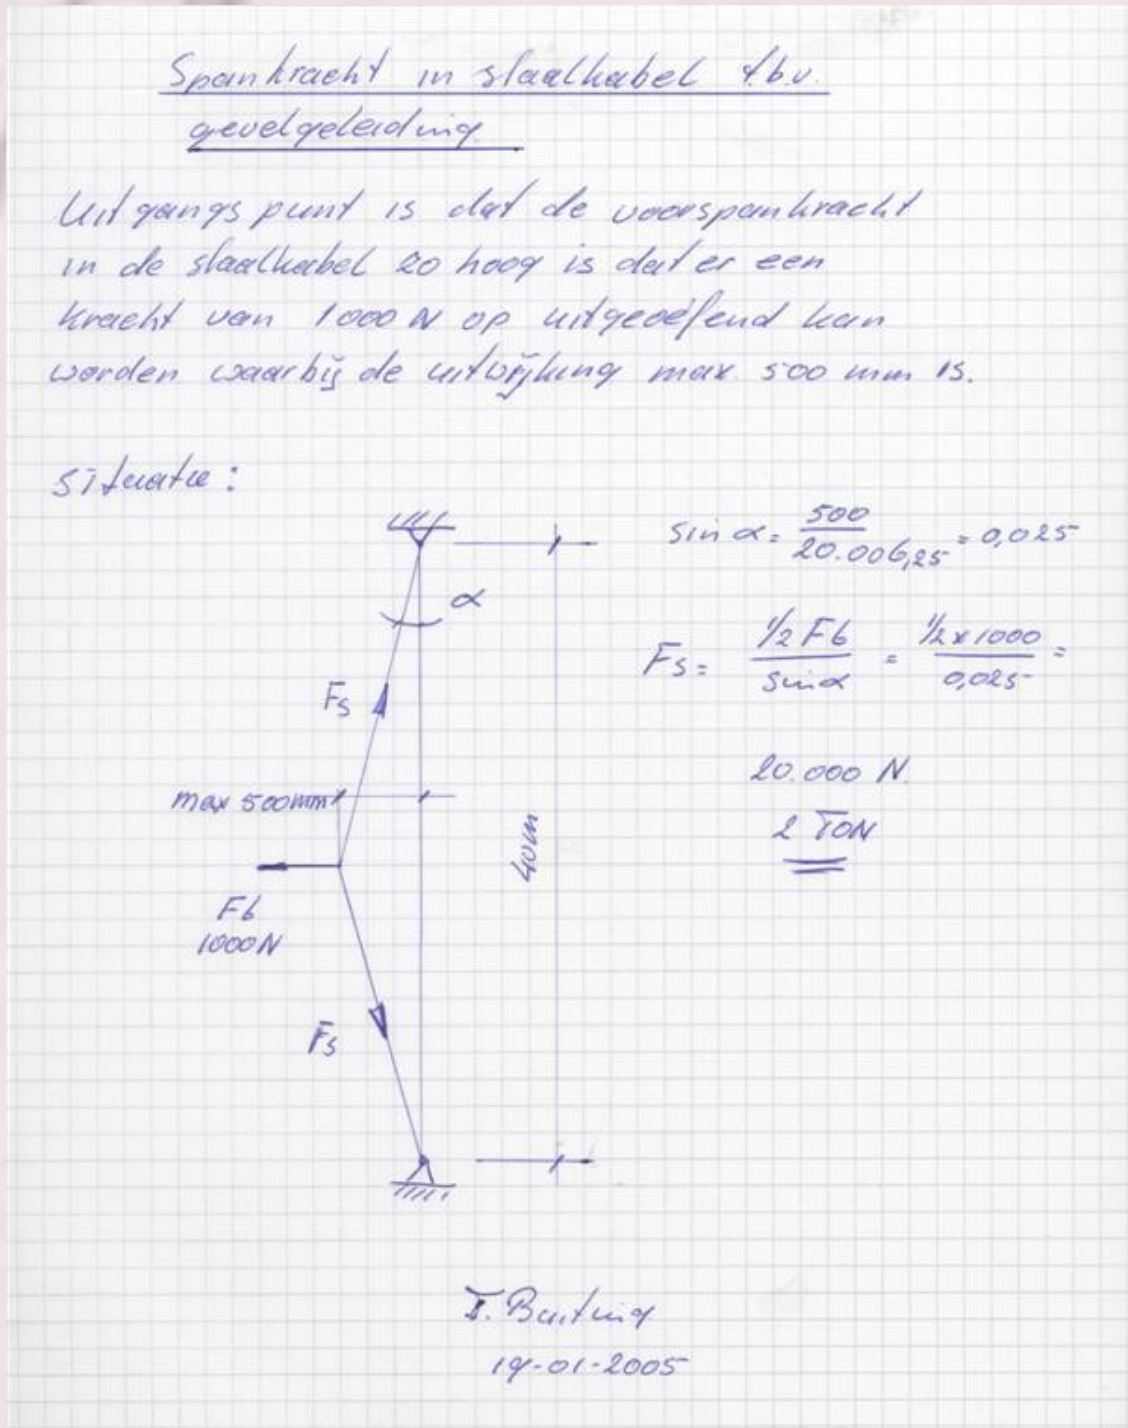 Spankracht in staalkabel t.b.v.
gevelgeleiding
Uitgangspunt is dat de voorspankracht
in de staalkabel zo hoog is dat er een
kracht van 1000 N op uitgeoefend kan
worden waarbij de uitwijking max. 500 mm is.
situatie:
sin α = 500 / 20.006,25 = 0,025
α
Fs = ½ Fb / sin α = ½ x 1000 / 0,025 =
Fs
20.000 N.
max 500mm
2 TON
40m
Fb
1000 N
Fs
19-01-2005